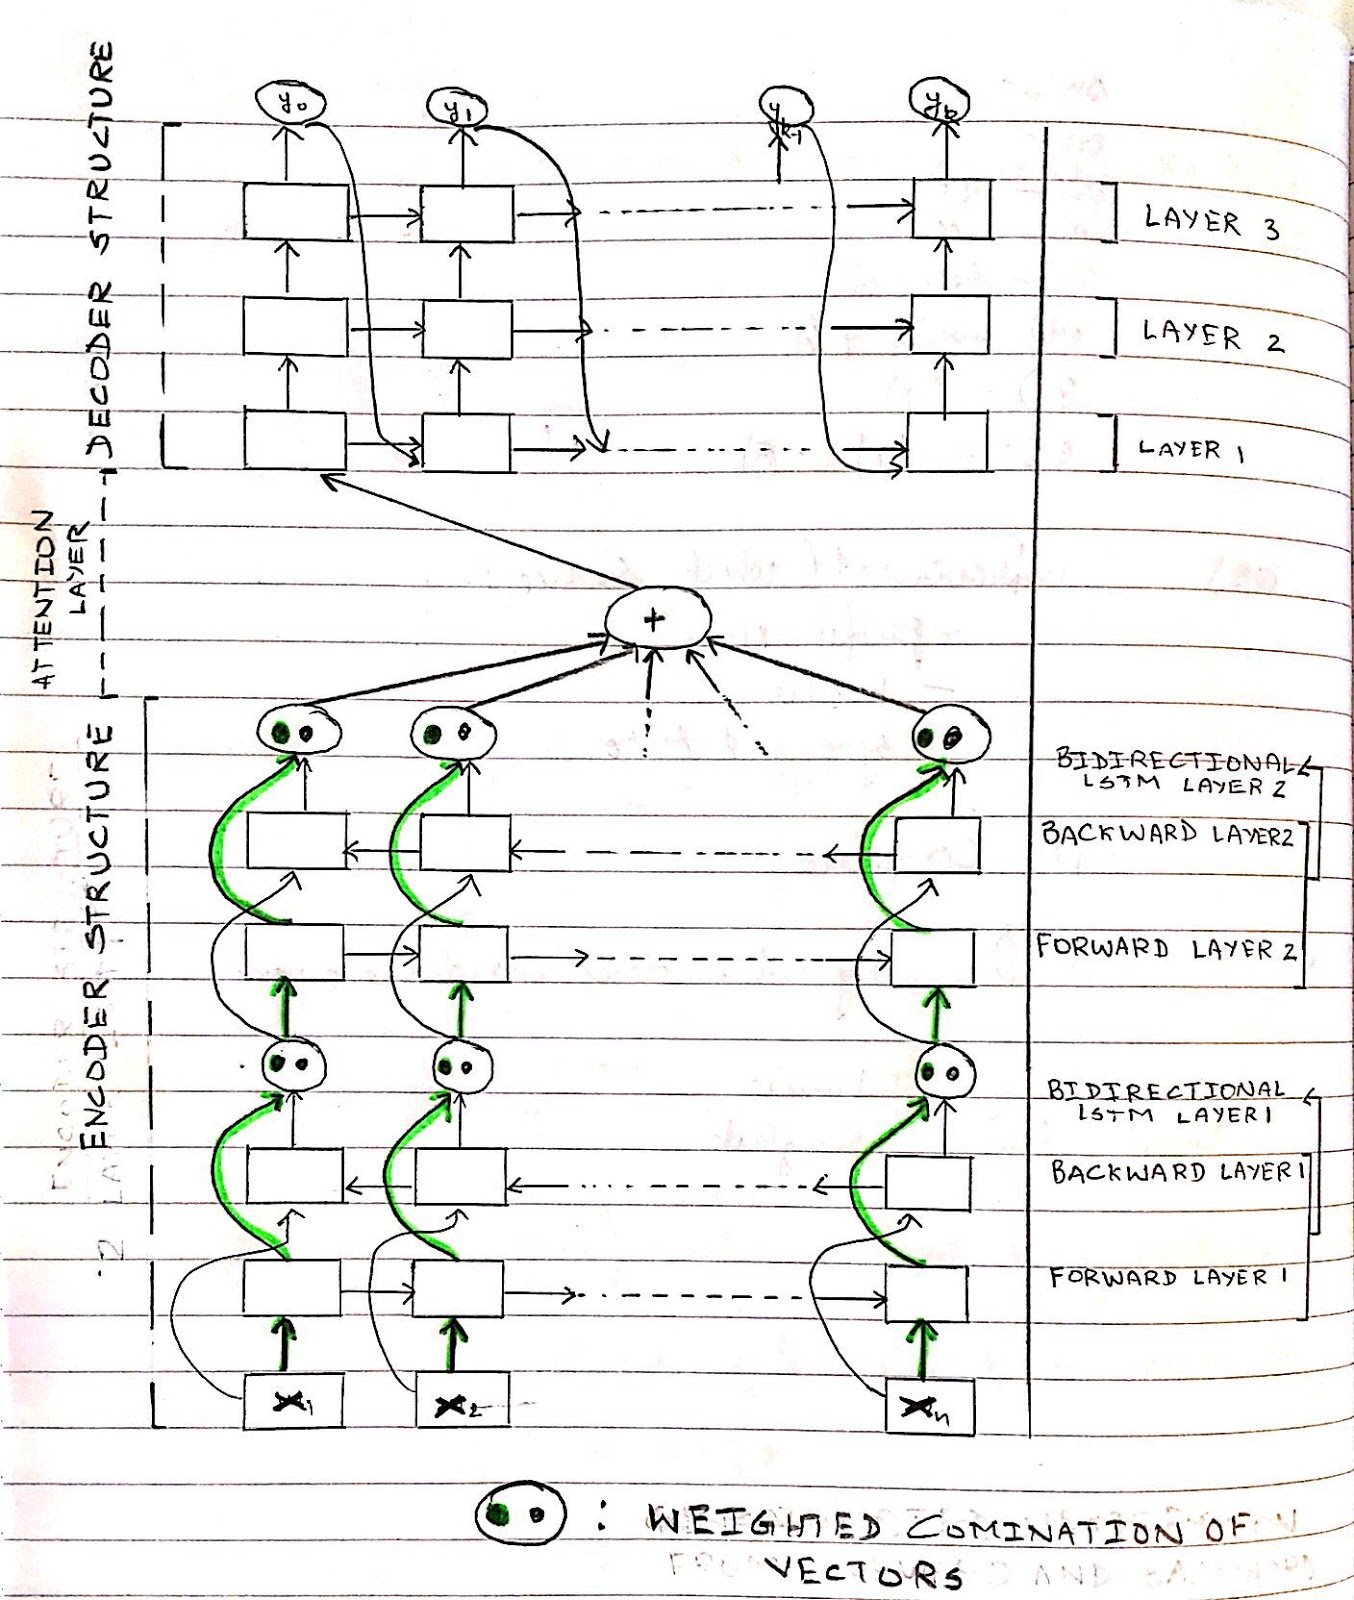 DECODER STRUCTURE
y₀ y₁ yₖ₋₁ yₖ
LAYER 3
LAYER 2
LAYER 1
ATTENTION
LAYER
+
ENCODER STRUCTURE
BIDIRECTIONAL
LSTM LAYER 2
BACKWARD LAYER2
FORWARD LAYER 2
BIDIRECTIONAL
LSTM LAYER1
BACKWARD LAYER1
FORWARD LAYER 1
X₁ X₂ Xₙ
: WEIGHTED COMINATION OF
VECTORS